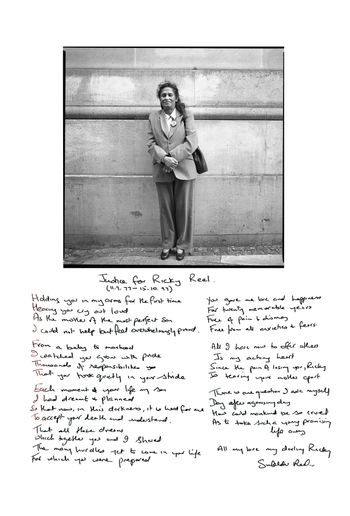 Justice for Ricky Reel.
Holding you in my arms for the first time
Hearing you cry out loud
As the mother of the most perfect son
I could not help but feel overwhelmingly proud.
From a baby to manhood
I watched you grow with pride
Thousands of responsibilities you
That you took greatly in your stride
Each moment of your life my son
I had dreamt & planned
So that now, in this darkness, it is hard for me
To accept your death and understand.
That all these dreams
which together you and I shared
The many hurdles yet to come in your life
For which you were prepared
You gave me love and happiness
For twenty memorable years
Free of pain & dismay
Free from all anxieties & fears.
All I have now to offer others
Is my aching heart
Since the pain of losing you, Ricky
Is tearing your mother apart
There is one question I ask myself
Day after agonising day
How could mankind be so cruel
As to take such a young promising
life away
All my love my darling Ricky